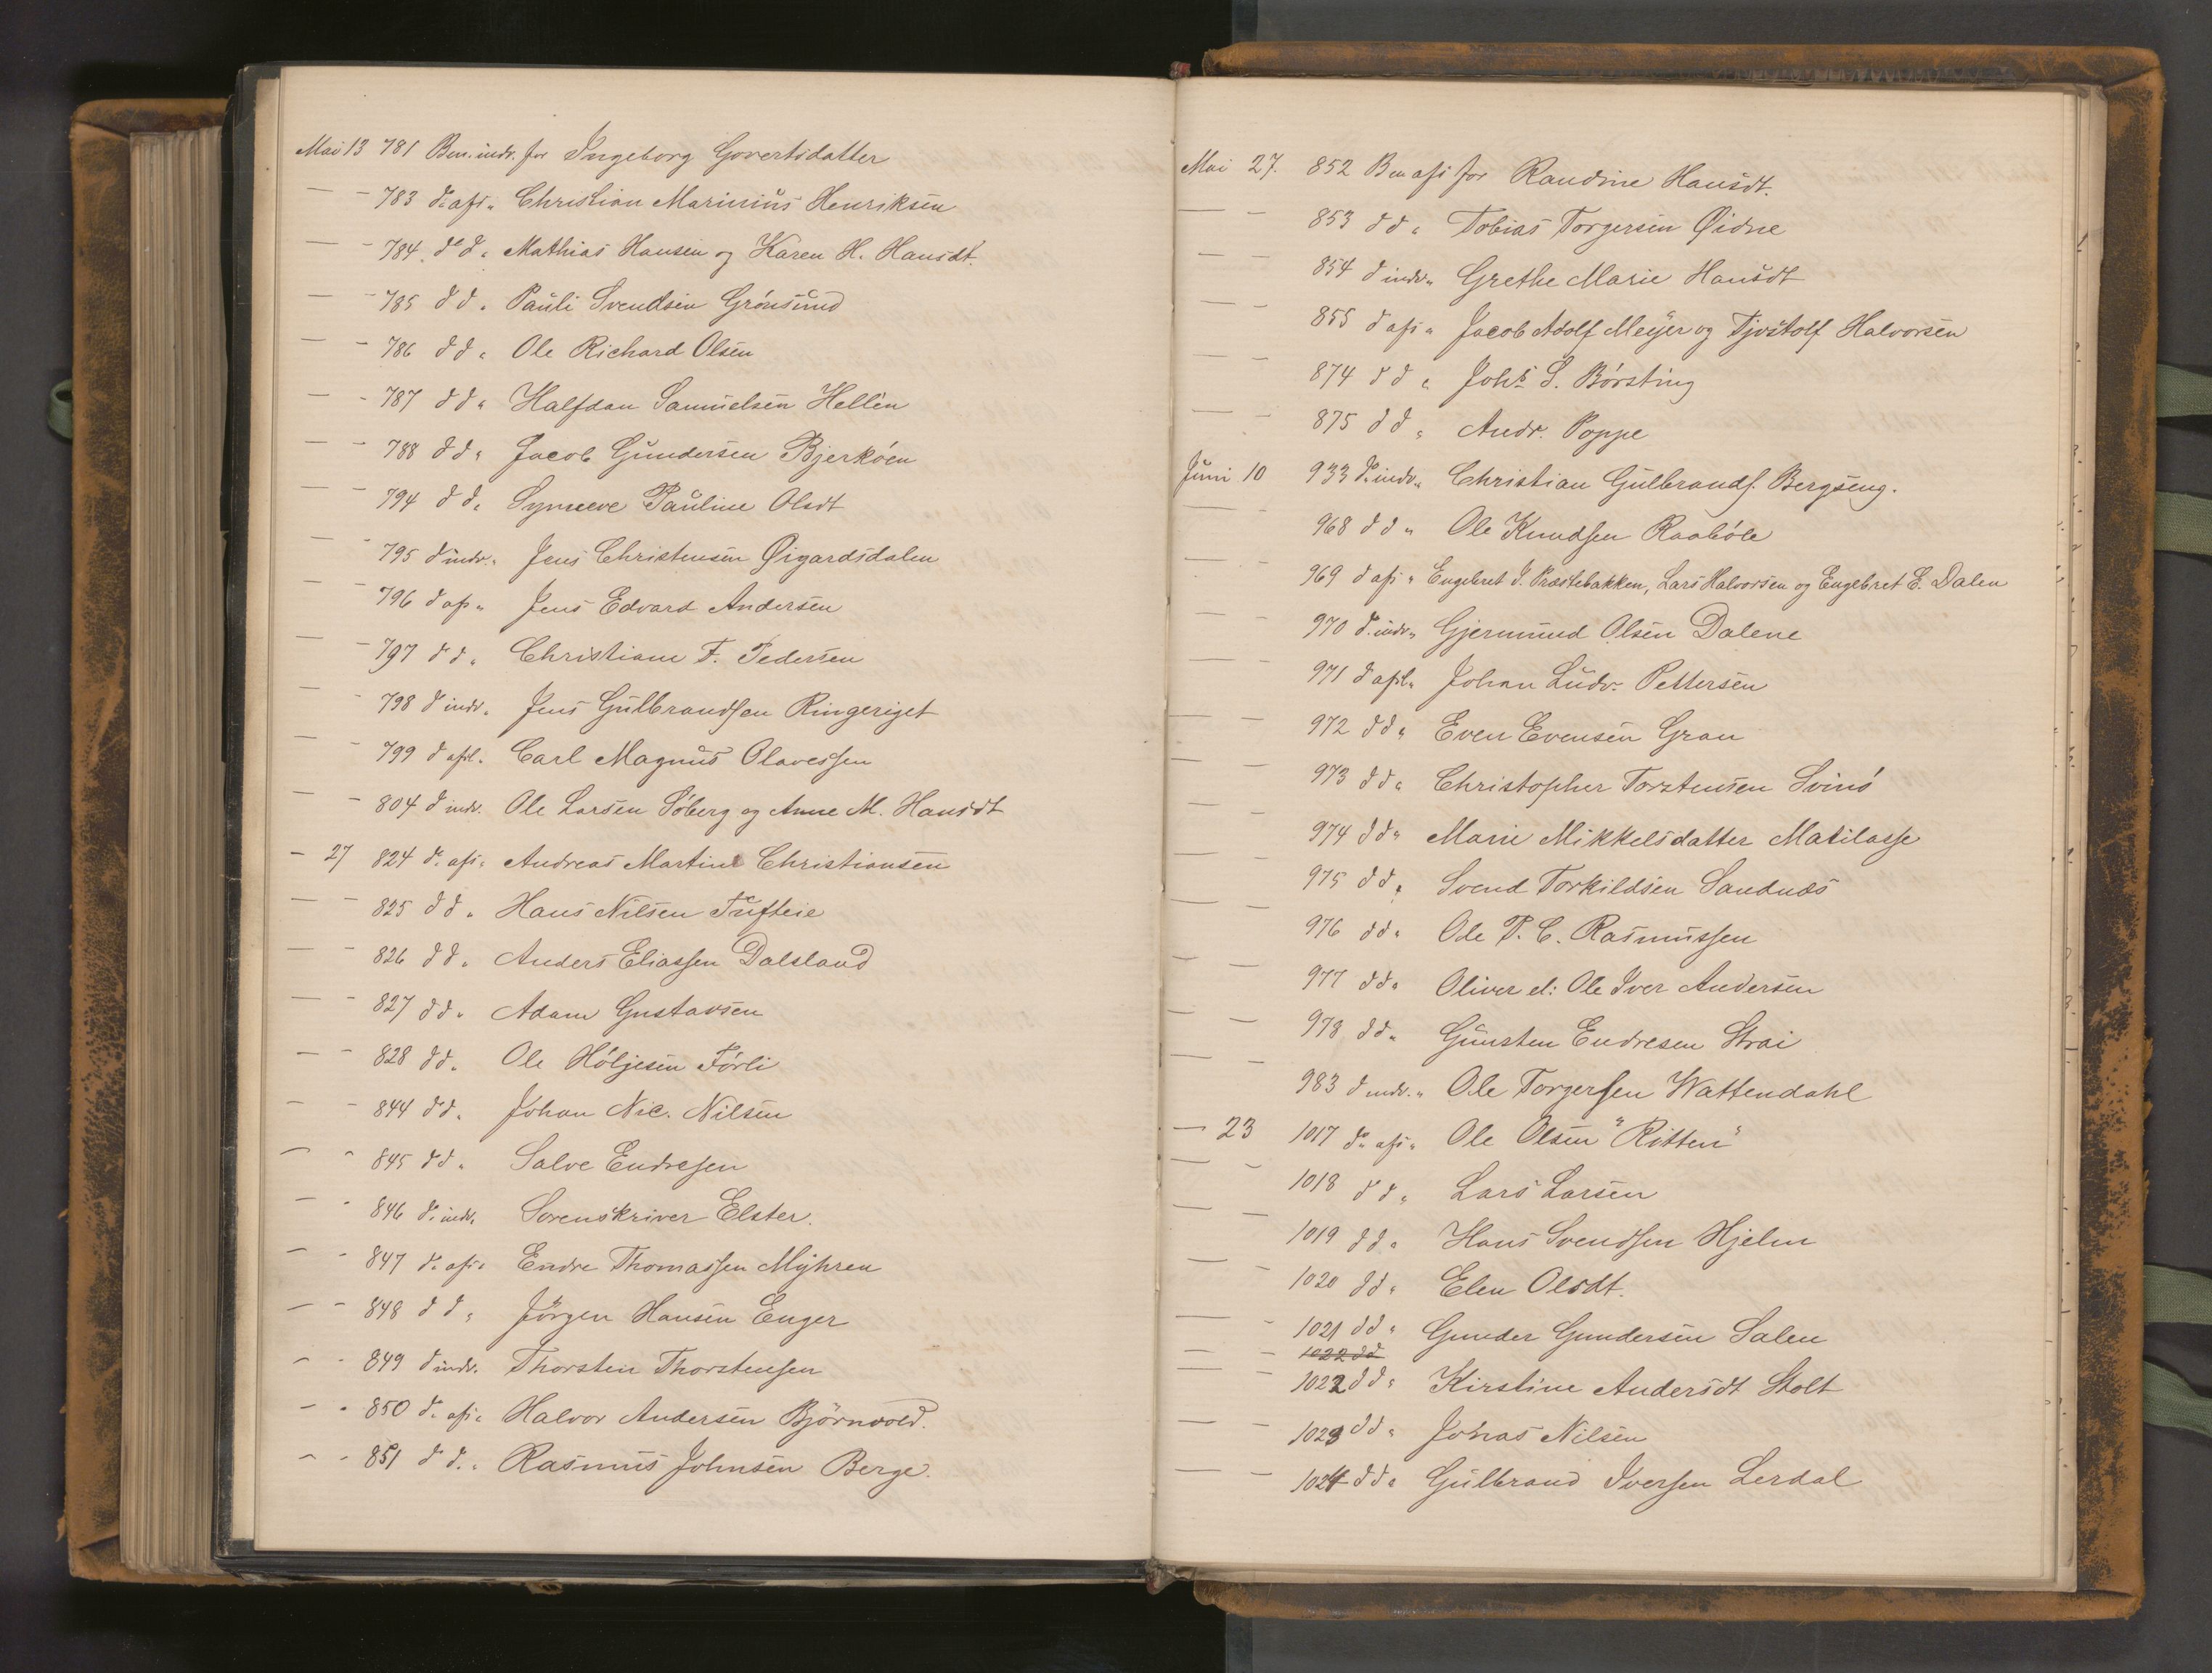 Mai 13 781 Ben. indv. for Ingeborg Govertsdatter
— – 783 do afs. " Christian Marinius Henriksen
— – 784. do d. " Mathias Hansen og Karen H. Hansdt.
— – 785 d d. " Pauli Svendsen Grønsund
— – 786 d d. " Ole Richard Olsen
— – 787 d d " Halfdan Samuelsen Hellen
— – 788 d d " Jacob Gundersen Bjerkøen
— – 794 d d. " Synneve Pauline Olsdt
— – 795 d indv. " Jens Christensen Øigardsdalen
— – 796 d afs " Jens Edvard Andersen
— – 797 d d. " Christiane F. Pedersen
— – 798 d indv. " Jens Gulbrandsen Ringeriget
— – 799 d afsl. Carl Magnus Olavessen
— – 804 d indv. Ole Larsen Søberg og Anne M. Hansdt
– 27 824 d. afs. " Andreas Martin Christiansen
— – 825 d d. " Hans Nilsen Tufteie
— – 826 d d. " Anders Eliassen Dalsland
— – 827 d d. " Adam Gustavsen
— – 828 d d. " Ole Høljesen Førli
— – 844 d d. " Johan Nic. Nilsen
– – 845 d d. " Salve Endresen
– – 846 d. indv. " Sorenskriver Elster.
– – 847 d. afs. " Endre Thomassen Myhren
– – 848 d d. " Jörgen Hansen Enger
– – 849 d indv. Thorsten Thorstensen
– – 850 d. afs. " Halvor Andersen Björnvold.
– – 851 d d. " Rasmus Johnsen Berge.
Mai 27. 852 Ben afs for Randine Hansdt.
— – 853 d d " Tobias Torgersen Øidne
— – 854 d indv. " Grethe Marie Hansdt
— – 855 d afs " Jacob Adolf Meyer og Tjostolf Halvorsen
— – 874 d d " Johs. S. Børsting
— – 875 d d " Andr. Poppe
Juni 10 933 do indv. " Christian Gulbrands. Bergseng.
— – 968 d d " Ole Knudsen Raabøle
— – 969 d afs " Engebret J. Præstebakken, Lars Halvorsen og Engebret E. Dalen
— – 970 d. indv. " Gjermund Olsen Dalene
— – 971 d afsl. " Johan Ludv. Pettersen
— – 972 d d " Even Evensen Gran
— – 973 d d " Christopher Torstensen Svinø
— – 974 d d " Marie Mikkelsdatter Matilasse
— – 975 d d " Svend Torkildsen Sandnæs
— – 976 d d " Ole P. C. Rasmussen
— – 977 d d " Oliver el: Ole Iver Andersen
— – 978 d d " Gunsten Endresen Strai
— – 983 d indv. " Ole Torgersen Wattendahl
— 23 1017 do afs " Ole Olsen "Ritten"
— – 1018 d d " Lars Larsen
— – 1019 d d " Hans Svendsen Hjelm
— – 1020 d d " Elen Olsdt.
— – 1021 d d " Gunder Gundersen Salen
— – 1022 d d
— – 1022 d d " Kirstine Andersdt Stolt
— – 1023 d d " Jonas Nilsen
— – 1024 d d " Gulbrand Iversen Lerdal